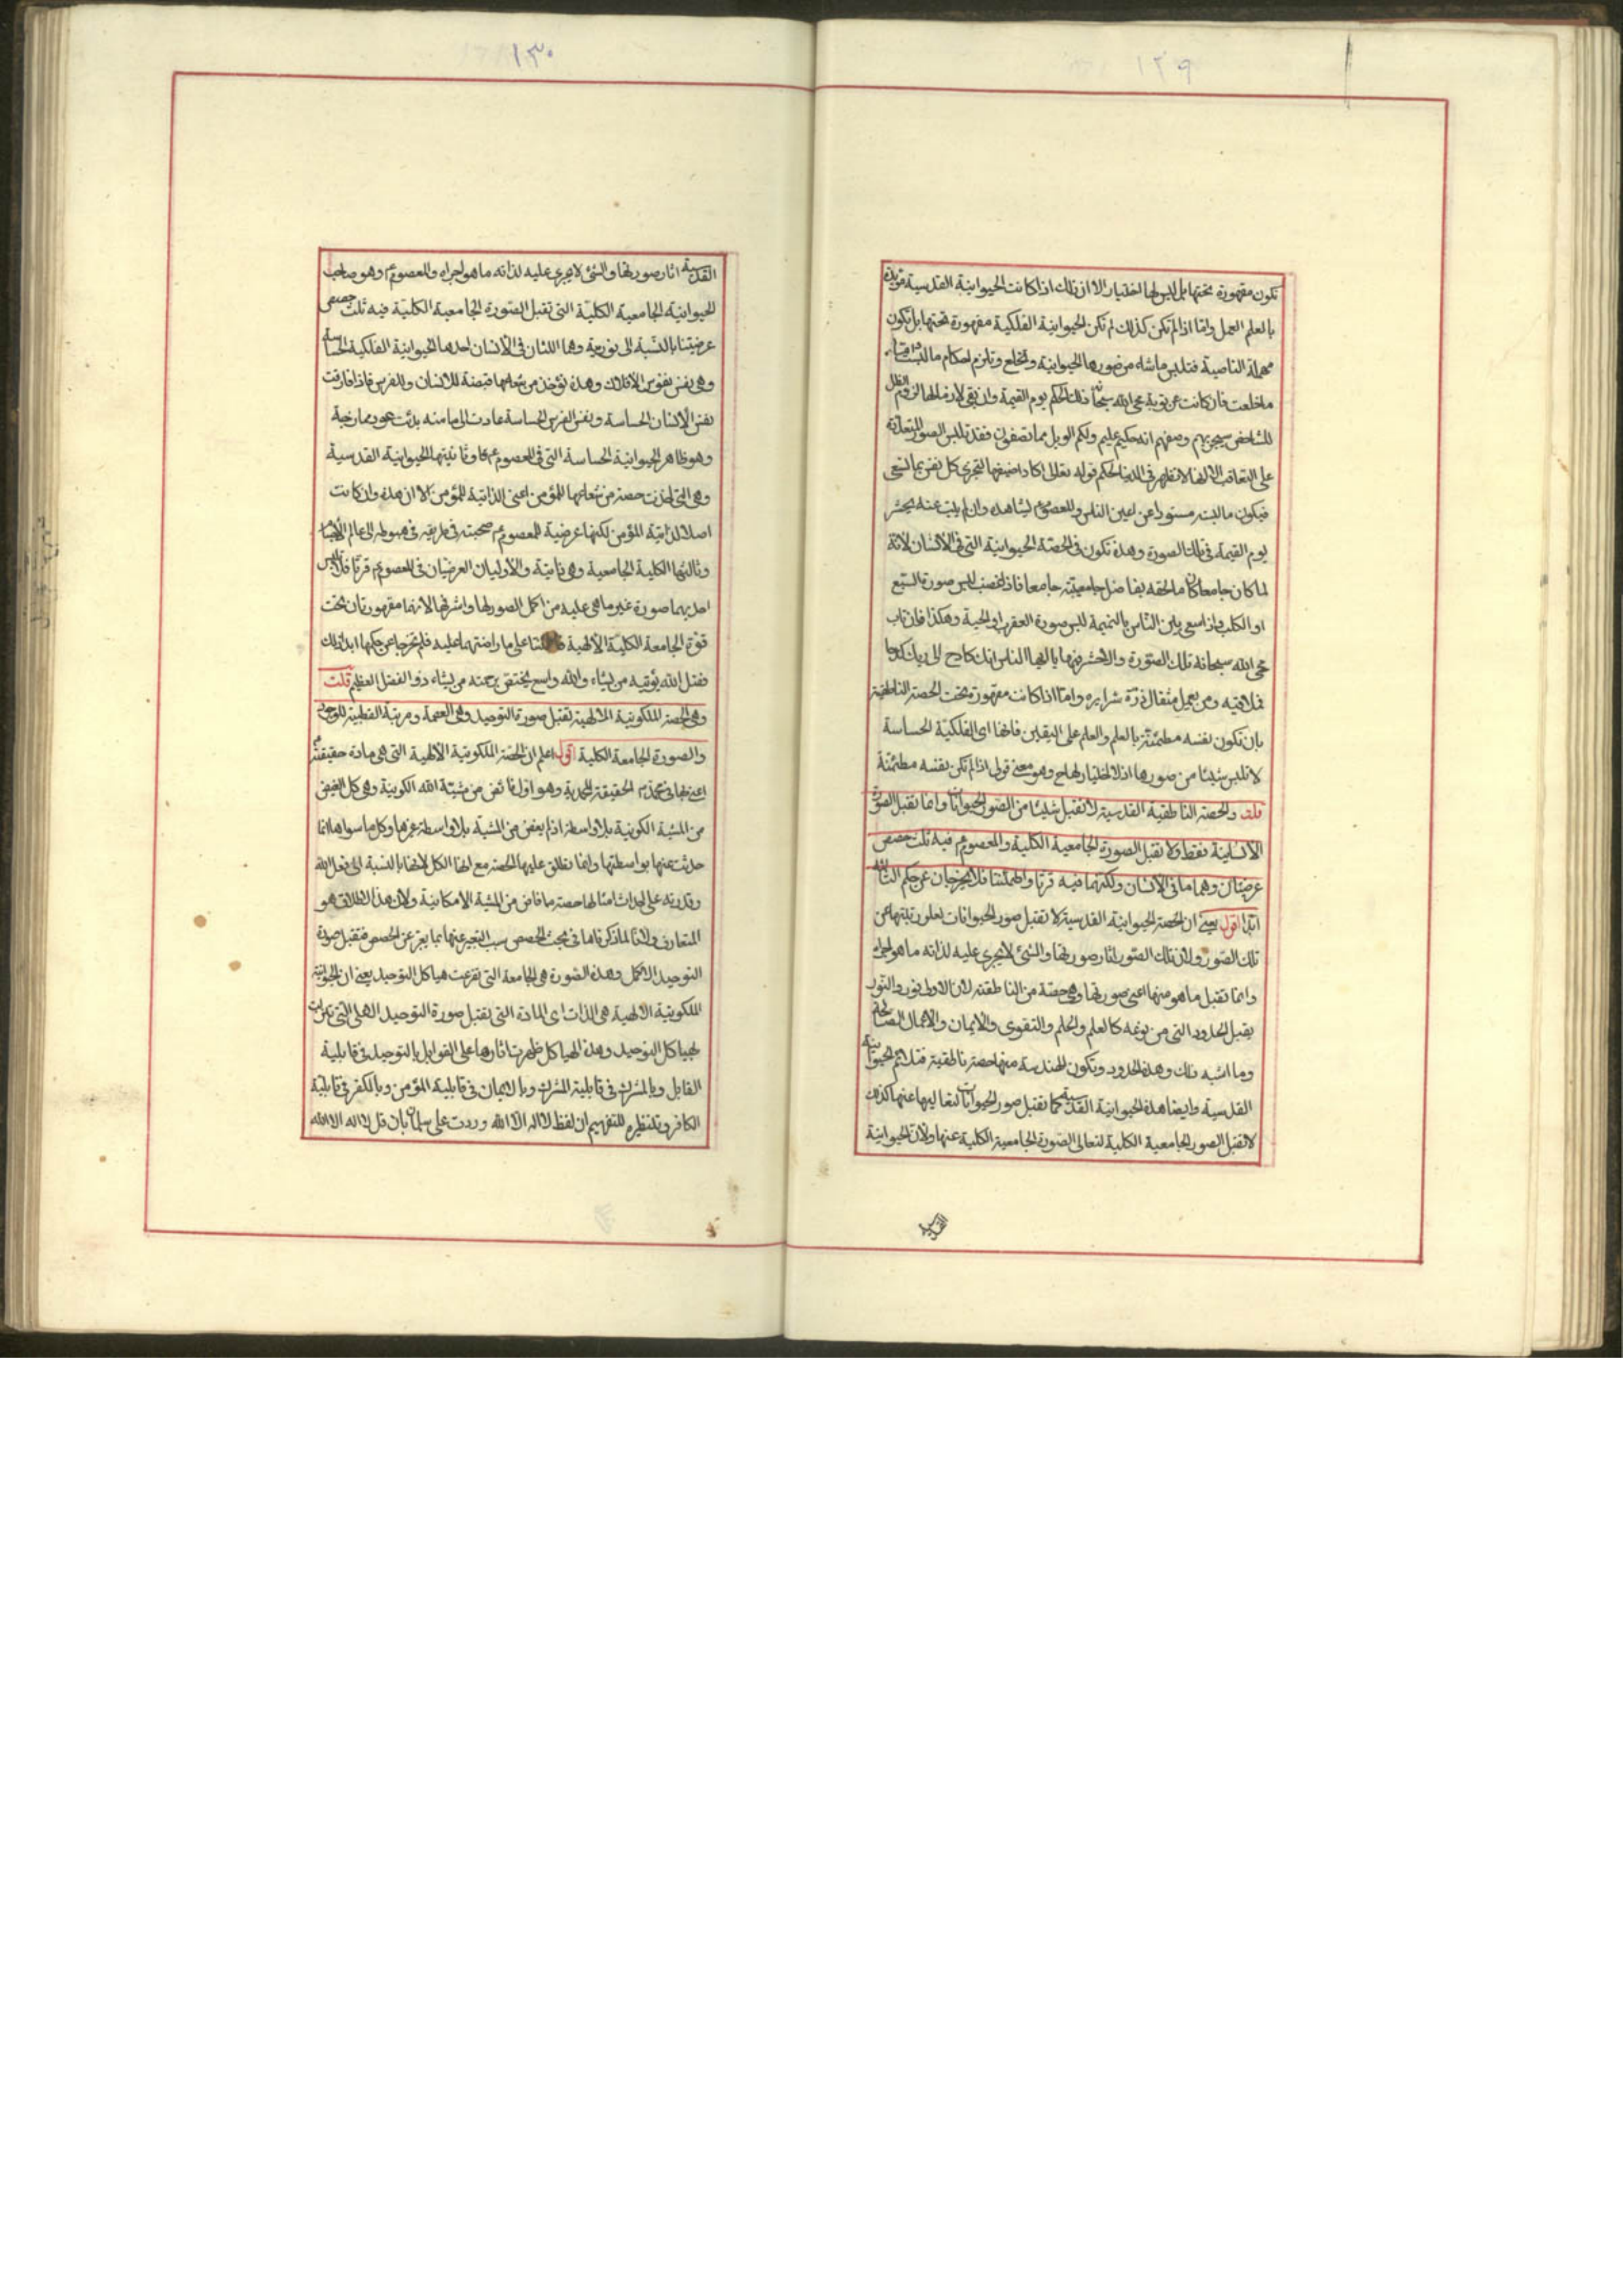 ١٢٩
تكون مقهورة تحتها بل ليس لها اختيار الا ان ذلك اذا كانت الحيوانية القدسية مؤيدة
بالعلم العمل وامّا اذا لم تكن كذلك لم تكن الحيوانية الفلكية مقهورة تحتها بل تكون
مهملة الناصية فتلبس ما شاءت من صورها الحيوانية وتخلع وتلزم احكام ما لبست
ما خلعت فان كانت عن توبة محى الله سبحانه ذلك الحكم يوم القيمة وان بقى لازما لها لزوم الظل
للشاخص سيجزيهم وصفهم انه حكيم عليم ولكم الويل مما تصفون فقد تلبس الصور المتعددة
على التعاقب الا انها لا تظهر فى الدنيا لحكم قوله تعالى اكاد اخفيها لتجزى كل نفس بما تسعى
فيكون ما لبست مستورا عن اعين الناس والمعصوم يشاهده وان لم يتب عنه يحشر
يوم القيمة فى تلك الصورة وهذه تكون فى الحصّة الحيوانية التى فى الانسان لانّه
لما كان جامعا كان ما لحقه بفاضل جامعيته جامعا فاذا غضب لبس صورة السبع
او الكلب واذا سعى بين النّاس بالنميمة لبس صورة العقرب او الحية وهكذا فان تاب
محى الله سبحانه تلك الصّورة والا حشر فيها يا ايها الناس انك كادح الى ربك كدحا
فملاقيه ومن يعمل مثقال ذرّة شرا يره وامّا اذا كانت مقهورة تحت الحصة الناطقية
بان تكون نفسه مطمئنّة بالعلم والعلم على اليقين فانها اى الفلكية الحساسة
لا تلبس شيئا من صورها اذ لا اختيار لها ح وهو معنى قولى اذا لم تكن نفسه مطمئنة
قلت والحصة الناطقية القدسية لا تقبل شيئا من الصّور الحيوانات وانما تقبل الصورة
الانسانية فقط ولا تقبل الصورة الجامعية الكلية والمعصوم ع فيه ثلث حصص
عرضيّتان وهما ما فى الانسان ولكنهما فيه قرّتا واطمئنّتا فلا يخرجان عن حكم الثالثة
ابدا اقول يعنى ان الحصة الحيوانية القدسية لا تقبل صور الحيوانات لعلو رتبتها عن
تلك الصّور ولان تلك الصّور اثار صورتها والشئ لا يجرى عليه لذاته ما هو اجراه
وانما تقبل ما هو منها اعنى صورتها وهى حصّة من الناطقة لان الاولى نور والنور
يقبل الحدود التى من نوعه كالعلم والحلم والتقوى والايمان والاعمال الصالحة
وما اشبه ذلك وهذه الحدود ويكون الهندسة منها حصة ناطقية فتلزم الحيوانية
القدسية وايضا هذه الحيوانية القدسية كما تقبل صور الحيوانات لتعاليها عنها كذلك
لا تقبل الصور الجامعية الكلية لتعالى الصّورة الجامعية الكلية عنها ولان الحيوانية
القدسية
١٣٠
القدسية اثار صورتها والشئ لا يجرى عليه لذاته ما هو اجراه والمعصوم ع وهو صاحب
الحيوانية الجامعية الكليّة التى تقبل الصّورة الجامعية الكليّة فيه ثلث حصص
عرضيّتنا بالنّسبة الى نوريته وهما اللتان فى الانسان احدهما الحيوانية الفلكية الحساسة
وهى نفس نفوس الافلاك وهذه تؤخذ من شعاعها قبضة للانسان وللفرس فاذا فارقت
نفس الانسان الحساسة ونفس الفرس الحساسة عادت الى ما منه بدئت عود ممازجة
وهو ظاهر الحيوانية الحساسة التى فى المعصوم ع وثانيتها الحيوانية القدسية
وهى التى اخذت حصة من شعاعها للمؤمن اعنى الذاتية للمؤمن الا ان هذه وان كانت
اصلا لذاتية المؤمن لكنها عرضية للمعصوم ع صحبته فى طريقه فى هبوطه الى عالم الاجسام
وثالثها الكلية الجامعية وهى ذاتية والاوليان العرضيان فى المعصوم ع قرّتا فلا تلبس
احديهما صورة غير ما هى عليه من اكمل الصور لها واشرفها لانهما مقهورتان تحت
قوّة الجامعة الكليّة الالهية على ما راضتهما عليه فلم تخرجا عن حكمها ابدا ذلك
فضل الله يؤتيه من يشاء والله واسع يختص برحمته من يشاء ذو الفضل العظيم قلت
وهى الحصة الملكوتية الالهية تقبل صورة التوحيد وهى العصمة ومرتبة القطبية للوجود
والصورة الجامعة الكلية اقول اعلم ان الحصّة الملكوتية الالهية التى هى مادة حقيقته
اعنى بها فى محمد ص الحقيقة المحمدية وهو اول فائض من مشيّة الله الكونية وهى كل الفيض
من المشية الكونية بلا واسطة اذ لم يفض من المشيّة بلا واسطة غيرها وكل ما سواها انما
حدثت عنها بواسطتها وانما نطلق عليها الحصة مع انها الكل لانها بالنسبة الى فعل الله
وقدرته على احداث امثالها حصة ما فاض من المشية الامكانية ولان هذا الاطلاق هو
المتعارف ولانا لما ذكرناها فى بحث الحصص سبب التعبير عنها بما يعبر عن الحصص فتقبل صورة
التوحيد الاكمل وهذه الصّورة هى الجامعة التى تفرعت هياكل التوحيد يعنى ان الحيوانية
الملكوتية الالهية هى الذات اى المادة التى تقبل صورة التوحيد الاصلى التى
لهياكل التوحيد وهذه الهياكل ظهرت اثارها على القوابل بالتوحيد فى قابلية
القابل وبالشرك فى قابلية المشرك وبالايمان فى قابلية المؤمن وبالكفر فى قابلية
الكافر ونظيره للتفهيم ان لفظ لا اله الا الله وردت على سلمان بان قل لا اله الا الله